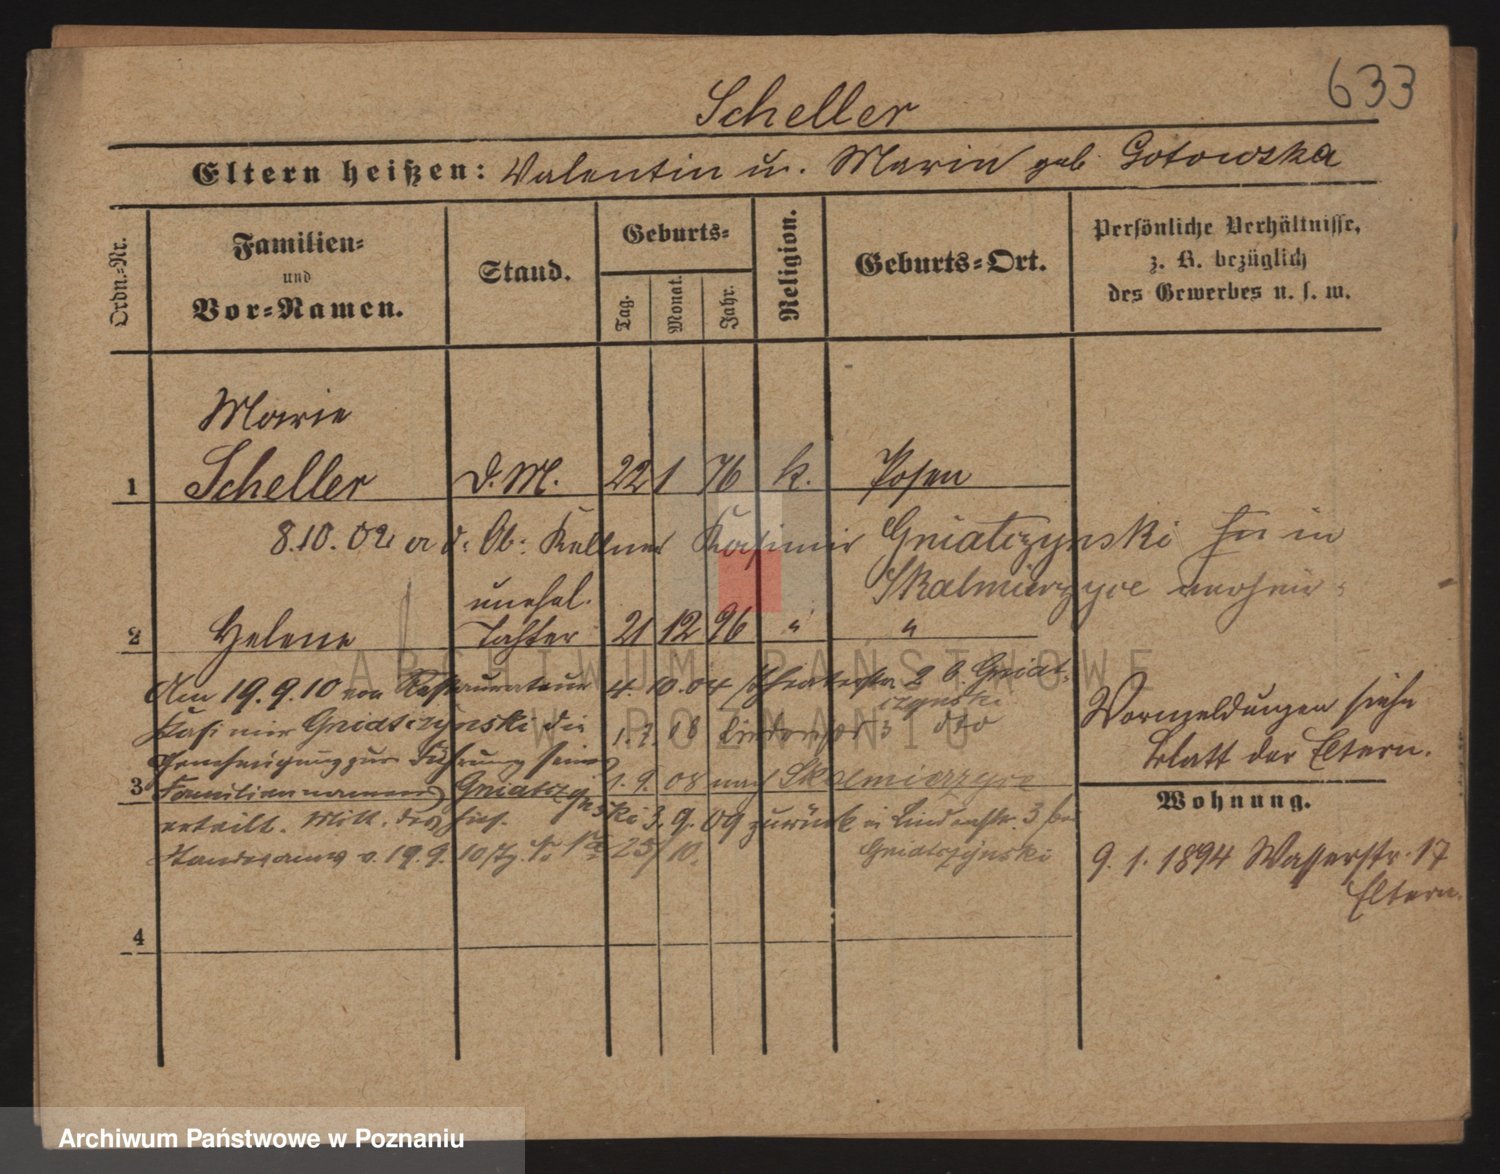 633
Scheller
Eltern heißen: Valentin u. Marin geb. Gotowska
Ordn.-Nr.
Familien-
und
Vor-Namen.
Stand.
Geburts-
Tag.
Monat.
Jahr.
Religion.
Geburts-Ort.
Persönliche Verhältnisse,
z. B. bezüglich
des Gewerbes u. s. w.
Marie
1 Scheller d. M. 22 1 76 k. Posen
8.10.02 Kellner Kasimir Gniatczynski in
Skalmierzyce
unehel.
2 Helene Tochter 21 12 96 " "
Am 19.9.10 von Restaurateur 4.10.04 2 b. Gniat-
czynski
Kasimir Gniatczynski die 08 3 dto
Genehmigung zur Führung seines
3 Familiennamens Gniatczynski 1.9.08 nach Skalmierzyce
erteilt. Mitt. des hies. 3.9.09 zurück Lindenstr. 3 bei
Standesamts v. 19.9.10 25/10. Gniatczynski
Vormeldungen siehe
Blatt der Eltern.
Wohnung.
9.1.1894 Wasserstr. 17
Eltern.
4
ARCHIWUM PAŃSTWOWE
W POZNANIU
Archiwum Państwowe w Poznaniu